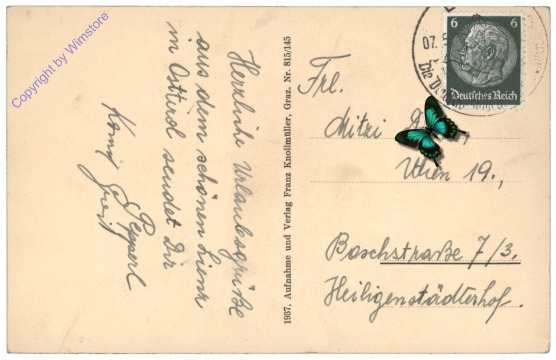 Copyright by Wimstore
Herzliche Urlaubsgrüße
aus dem schönen Lienz
in Osttirol sendet Dir
1937. Aufnahme und Verlag Franz Knollmüller, Graz. Nr. 815/145
6 6
Deutsches Reich
07.5
Frl.
Mitzi
Wien 19.,
Boschstraße 7/3.
Heiligenstädterhof.